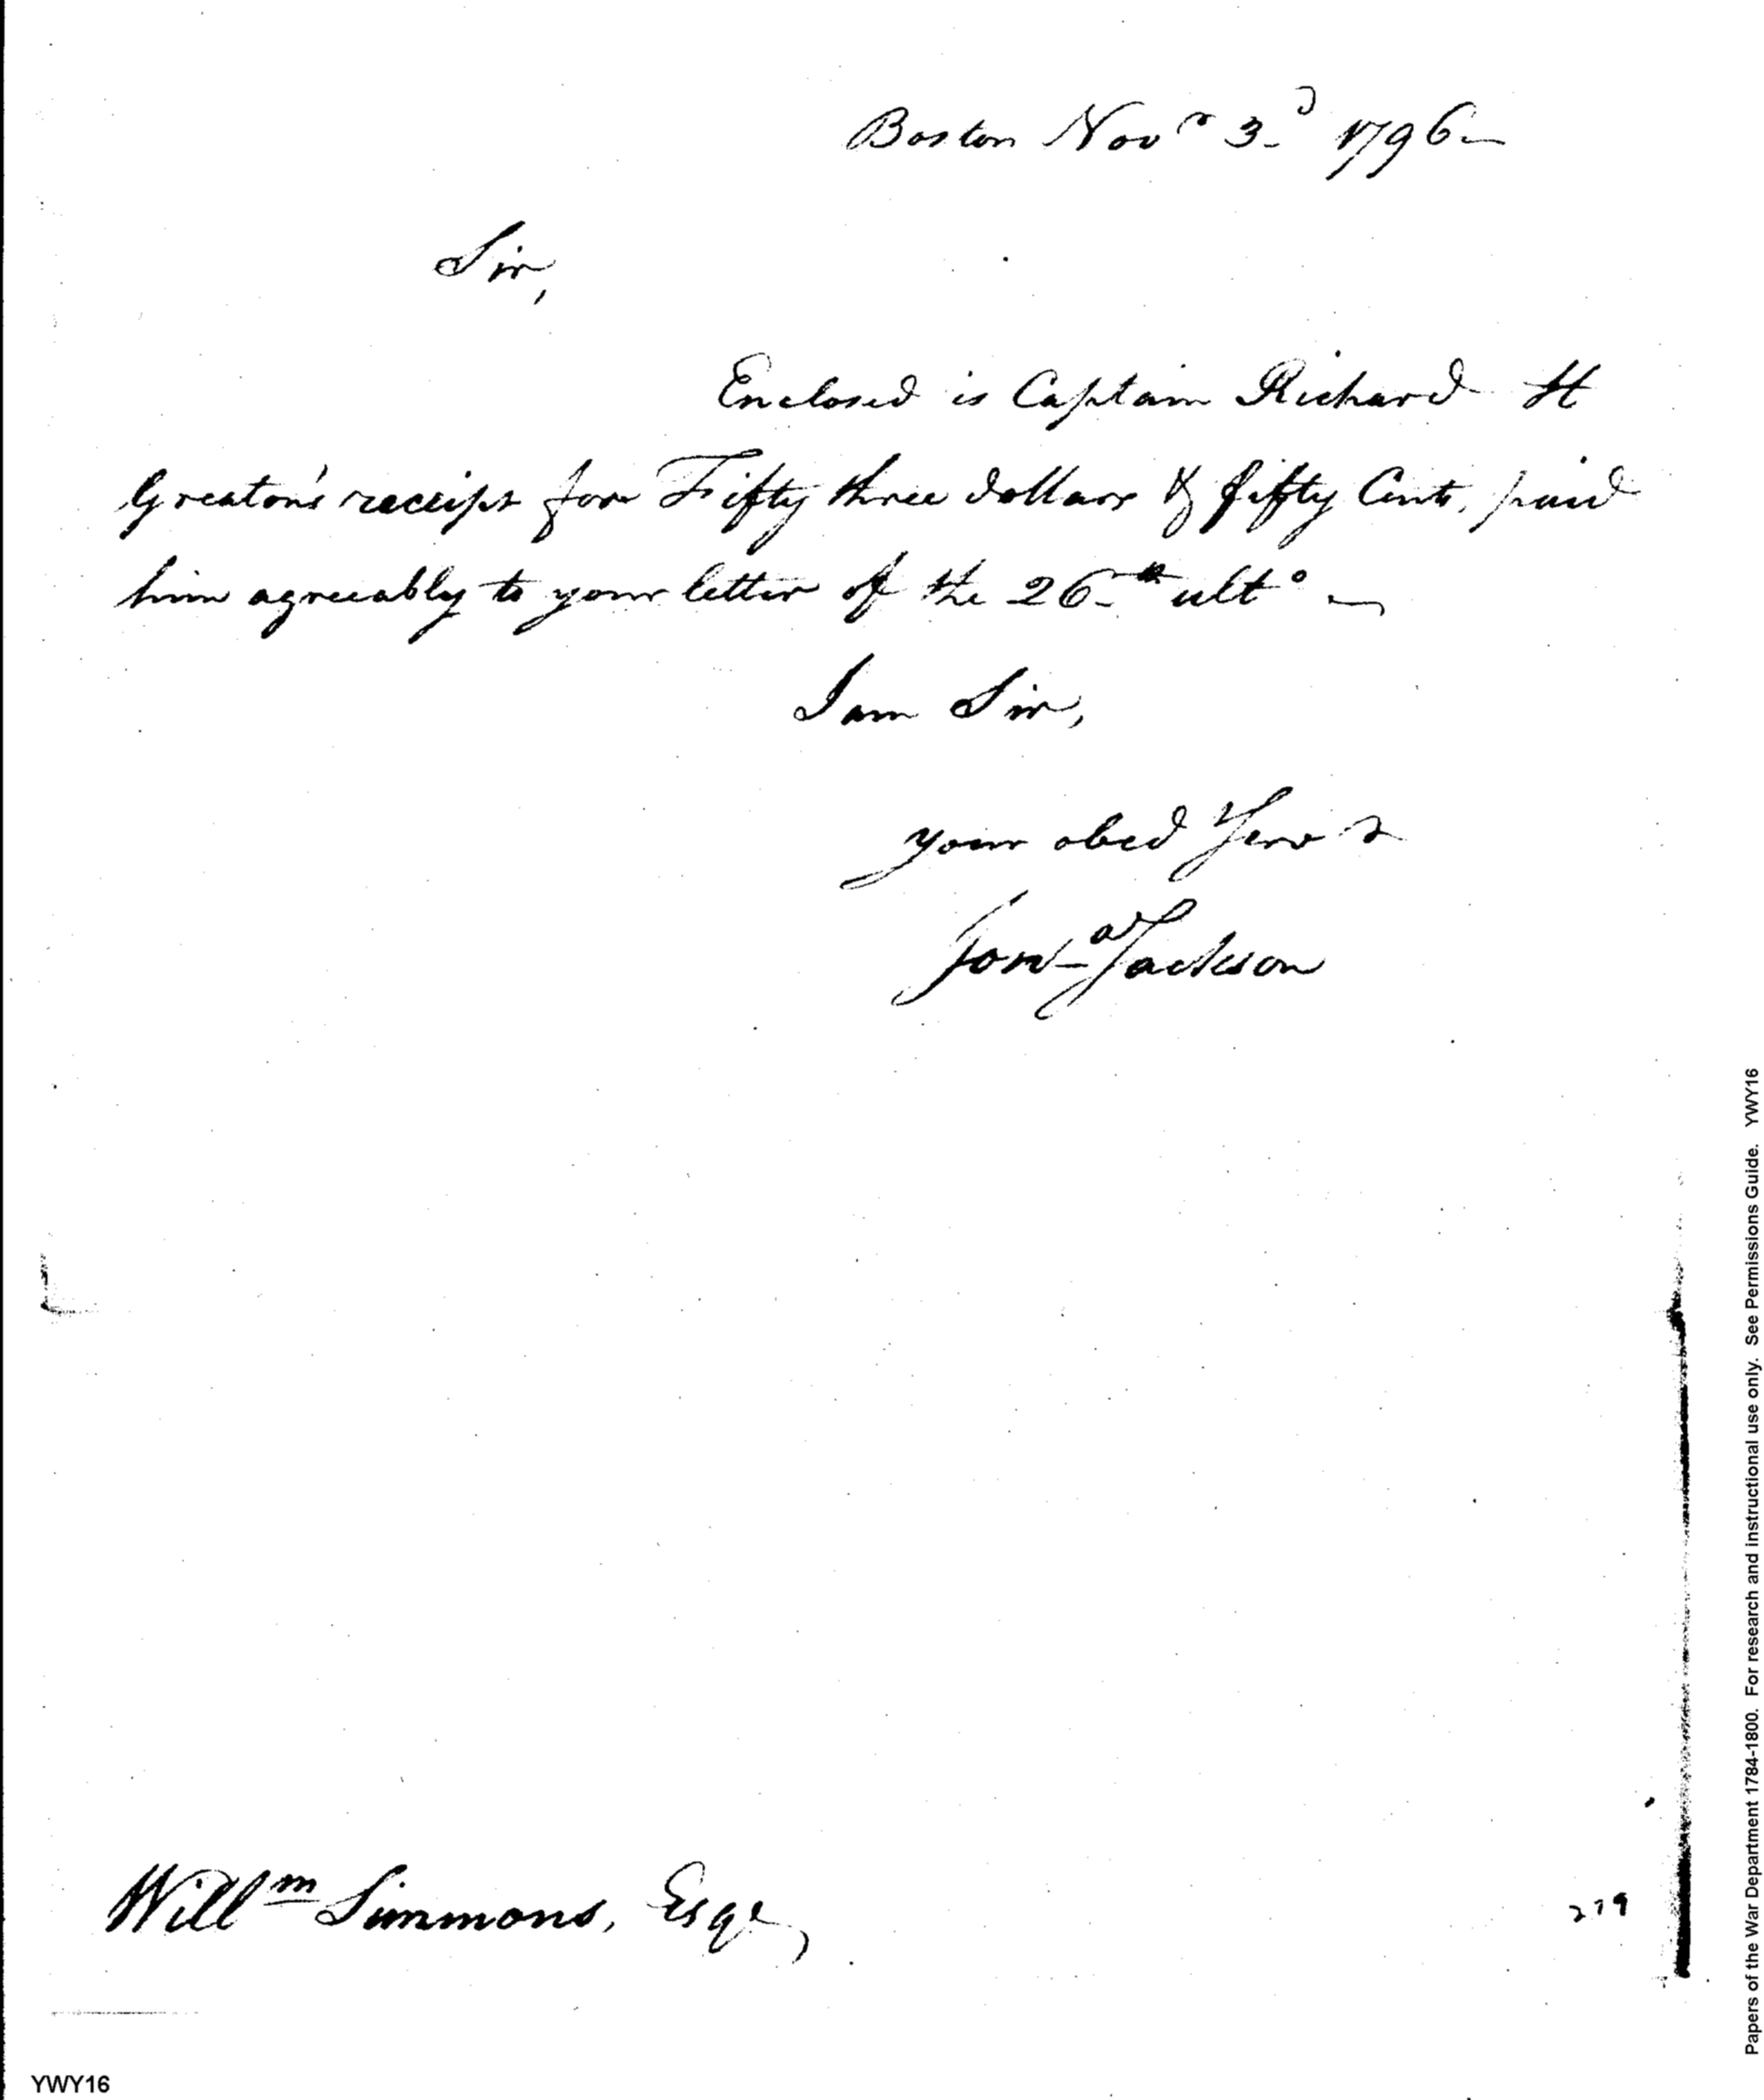 Boston Nov.r 3.d 1796—
Sir,
Enclosed is Captain Richard H
Greaton's receipt for Fifty three dollars & fifty Cents, paid
him agreeably to your letter of the 26.th ulto—
I am Sir,
your obed Servt
Jona Jackson
Willm Simmons, Esqr,
219
YWY16
Papers of the War Department 1784-1800. For research and instructional use only. See Permissions Guide. YWY16